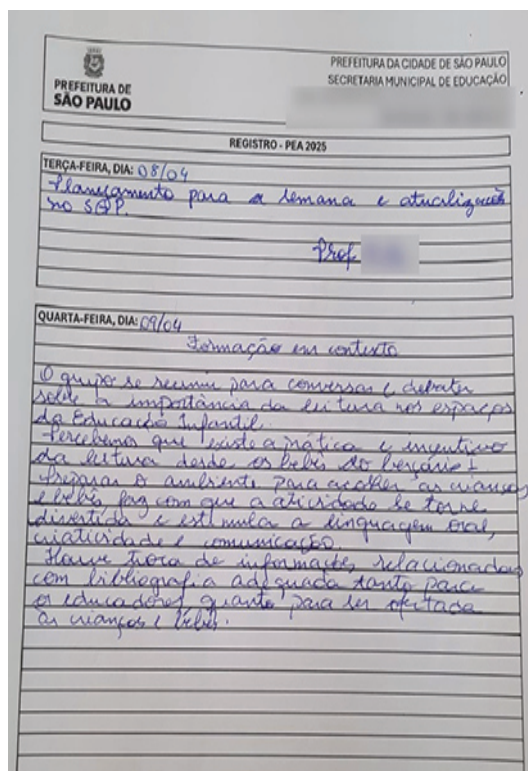 PREFEITURA DE
SÃO PAULO
PREFEITURA DA CIDADE DE SÃO PAULO
SECRETARIA MUNICIPAL DE EDUCAÇÃO
REGISTRO - PEA 2025
TERÇA-FEIRA, DIA: 08/04
Planejamento para a semana e atualizações
no SGP.
Prof
QUARTA-FEIRA, DIA: 09/04
Formação em contexto
O grupo se reuniu para conversar e debater
sobre a importância da leitura nos espaços
da Educação Infantil.
Percebemos que existe a prática e incentivo
da leitura desde os bebês do berçário I
Preparar o ambiente para acolher as crianças
e bebês faz com que a atividade se torne
divertida e estimula a linguagem oral,
criatividade e comunicação.
Houve troca de informações relacionadas
com bibliografia adequada tanto para
os educadores quanto para ser ofertada
às crianças e bebês.